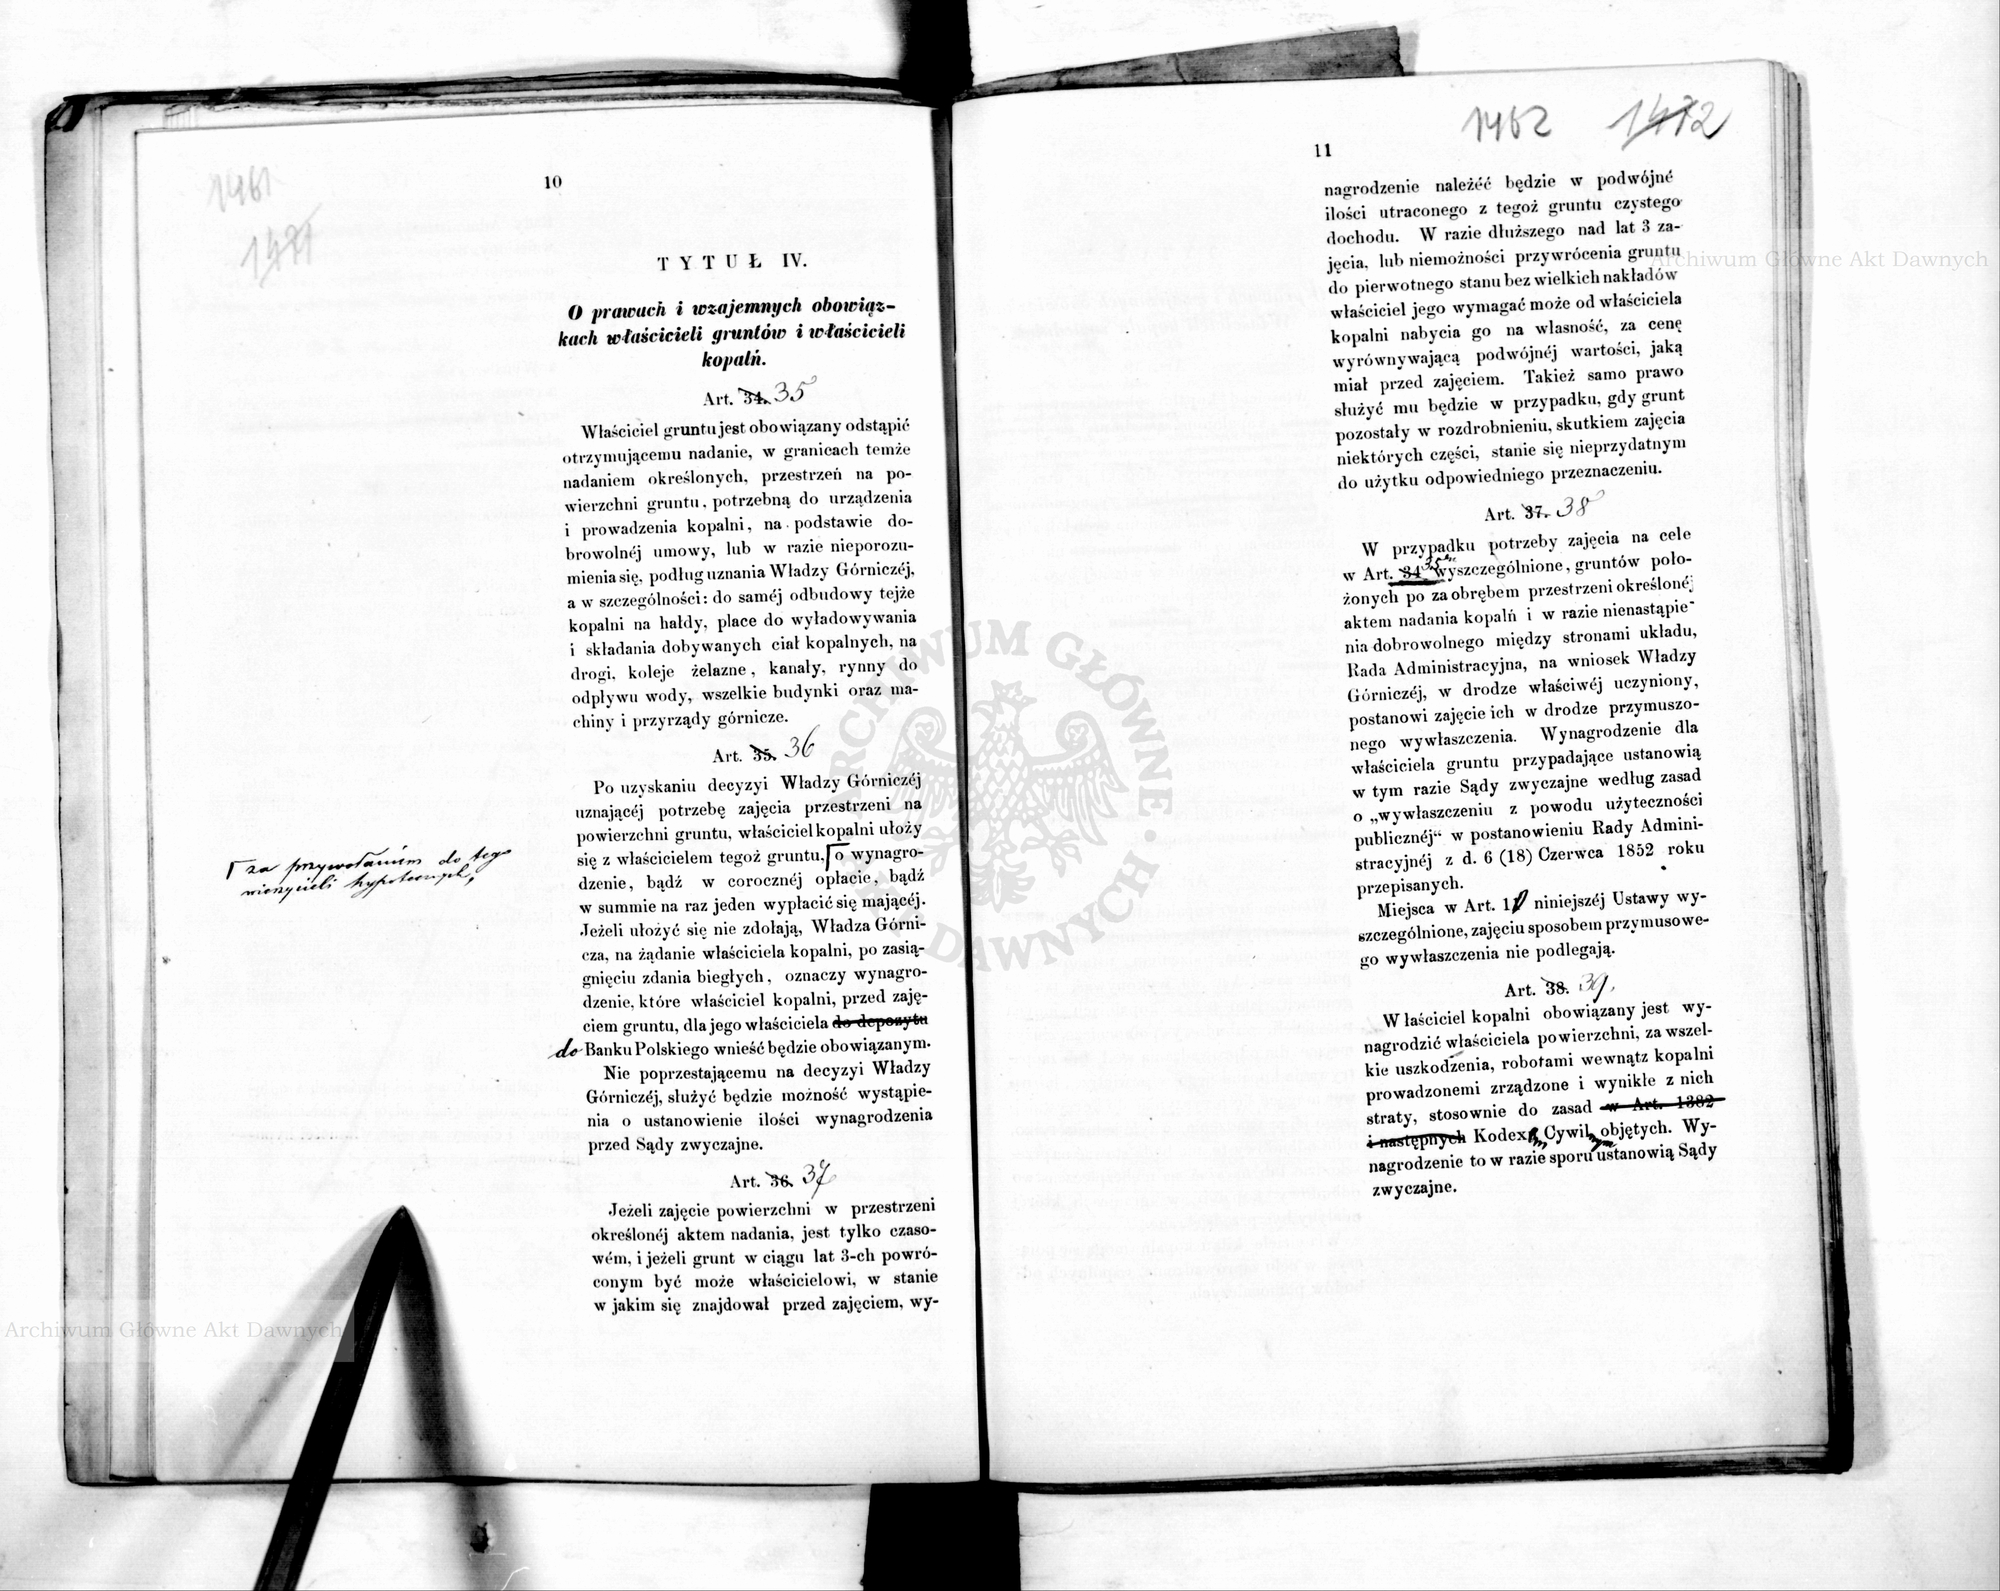 1461
1471
10
TYTUŁ IV.
O prawach i wzajemnych obowiąz-
kach właścicieli gruntów i właścicieli
kopalń.
Art. 34. 35
Właściciel gruntu jest obowiązany odstąpić
otrzymującemu nadanie, w granicach temże
nadaniem określonych, przestrzeń na po-
wierzchni gruntu, potrzebną do urządzenia
i prowadzenia kopalni, na podstawie do-
browolnéj umowy, lub w razie nieporozu-
mienia się, podług uznania Władzy Górniczéj,
a w szczególności: do saméj odbudowy tejże
kopalni na hałdy, place do wyładowywania
i składania dobywanych ciał kopalnych, na
drogi, koleje żelazne, kanały, rynny do
odpływu wody, wszelkie budynki oraz ma-
chiny i przyrządy górnicze.
Art. 35. 36
Po uzyskaniu decyzyi Władzy Górniczéj
uznającéj potrzebę zajęcia przestrzeni na
powierzchni gruntu, właściciel kopalni ułoży
się z właścicielem tegoż gruntu, o wynagro-
dzenie, bądź w corocznéj opłacie, bądź
w summie na raz jeden wypłacić się mającéj.
Jeżeli ułożyć się nie zdołają, Władza Górni-
cza, na żądanie właściciela kopalni, po zasią-
gnięciu zdania biegłych, oznaczy wynagro-
dzenie, które właściciel kopalni, przed zaję-
ciem gruntu, dla jego właściciela do depozytu
do Banku Polskiego wnieść będzie obowiązanym.
Nie poprzestającemu na decyzyi Władzy
Górniczéj, służyć będzie możność wystąpie-
nia o ustanowienie ilości wynagrodzenia
przed Sądy zwyczajne.
Art. 36. 37
Jeżeli zajęcie powierzchni w przestrzeni
określonéj aktem nadania, jest tylko czaso-
wém, i jeżeli grunt w ciągu lat 3-ch powró-
conym być może właścicielowi, w stanie
w jakim się znajdował przed zajęciem, wy-
za przywołaniem do tego
wierzycieli hypotecznych,
1462 1472
11
nagrodzenie należéć będzie w podwójné
ilości utraconego z tegoż gruntu czystego
dochodu. W razie dłuższego nad lat 3 za-
jęcia, lub niemożności przywrócenia gruntu
do pierwotnego stanu bez wielkich nakładów
właściciel jego wymagać może od właściciela
kopalni nabycia go na własność, za cenę
wyrównywającą podwójnéj wartości, jaką
miał przed zajęciem. Takież samo prawo
służyć mu będzie w przypadku, gdy grunt
pozostały w rozdrobnieniu, skutkiem zajęcia
niektórych części, stanie się nieprzydatnym
do użytku odpowiedniego przeznaczeniu.
Art. 37. 38
W przypadku potrzeby zajęcia na cele
w Art. 34 35 wyszczególnione, gruntów poło-
żonych po za obrębem przestrzeni określonéj
aktem nadania kopalń i w razie nienastąpie-
nia dobrowolnego między stronami układu,
Rada Administracyjna, na wniosek Władzy
Górniczéj, w drodze właściwéj uczyniony,
postanowi zajęcie ich w drodze przymuszo-
nego wywłaszczenia. Wynagrodzenie dla
właściciela gruntu przypadające ustanowią
w tym razie Sądy zwyczajne według zasad
o „wywłaszczeniu z powodu użyteczności
publicznéj“ w postanowieniu Rady Admini-
stracyjnéj z d. 6 (18) Czerwca 1852 roku
przepisanych.
Miejsca w Art. niniejszéj Ustawy wy-
szczególnione, zajęciu sposobem przymusowe-
go wywłaszczenia nie podlegają.
Art. 38. 39.
Właściciel kopalni obowiązany jest wy-
nagrodzić właściciela powierzchni, za wszel-
kie uszkodzenia, robotami wewnątz kopalni
prowadzonemi zrządzone i wynikłe z nich
straty, stosownie do zasad w Art. 1382
i następnych Kodex Cywil objętych. Wy-
nagrodzenie to w razie sporu ustanowią Sądy
zwyczajne.
ARCHIWUM GŁÓWNE AKT DAWNYCH
Archiwum Główne Akt Dawnych
Archiwum Główne Akt Dawnych